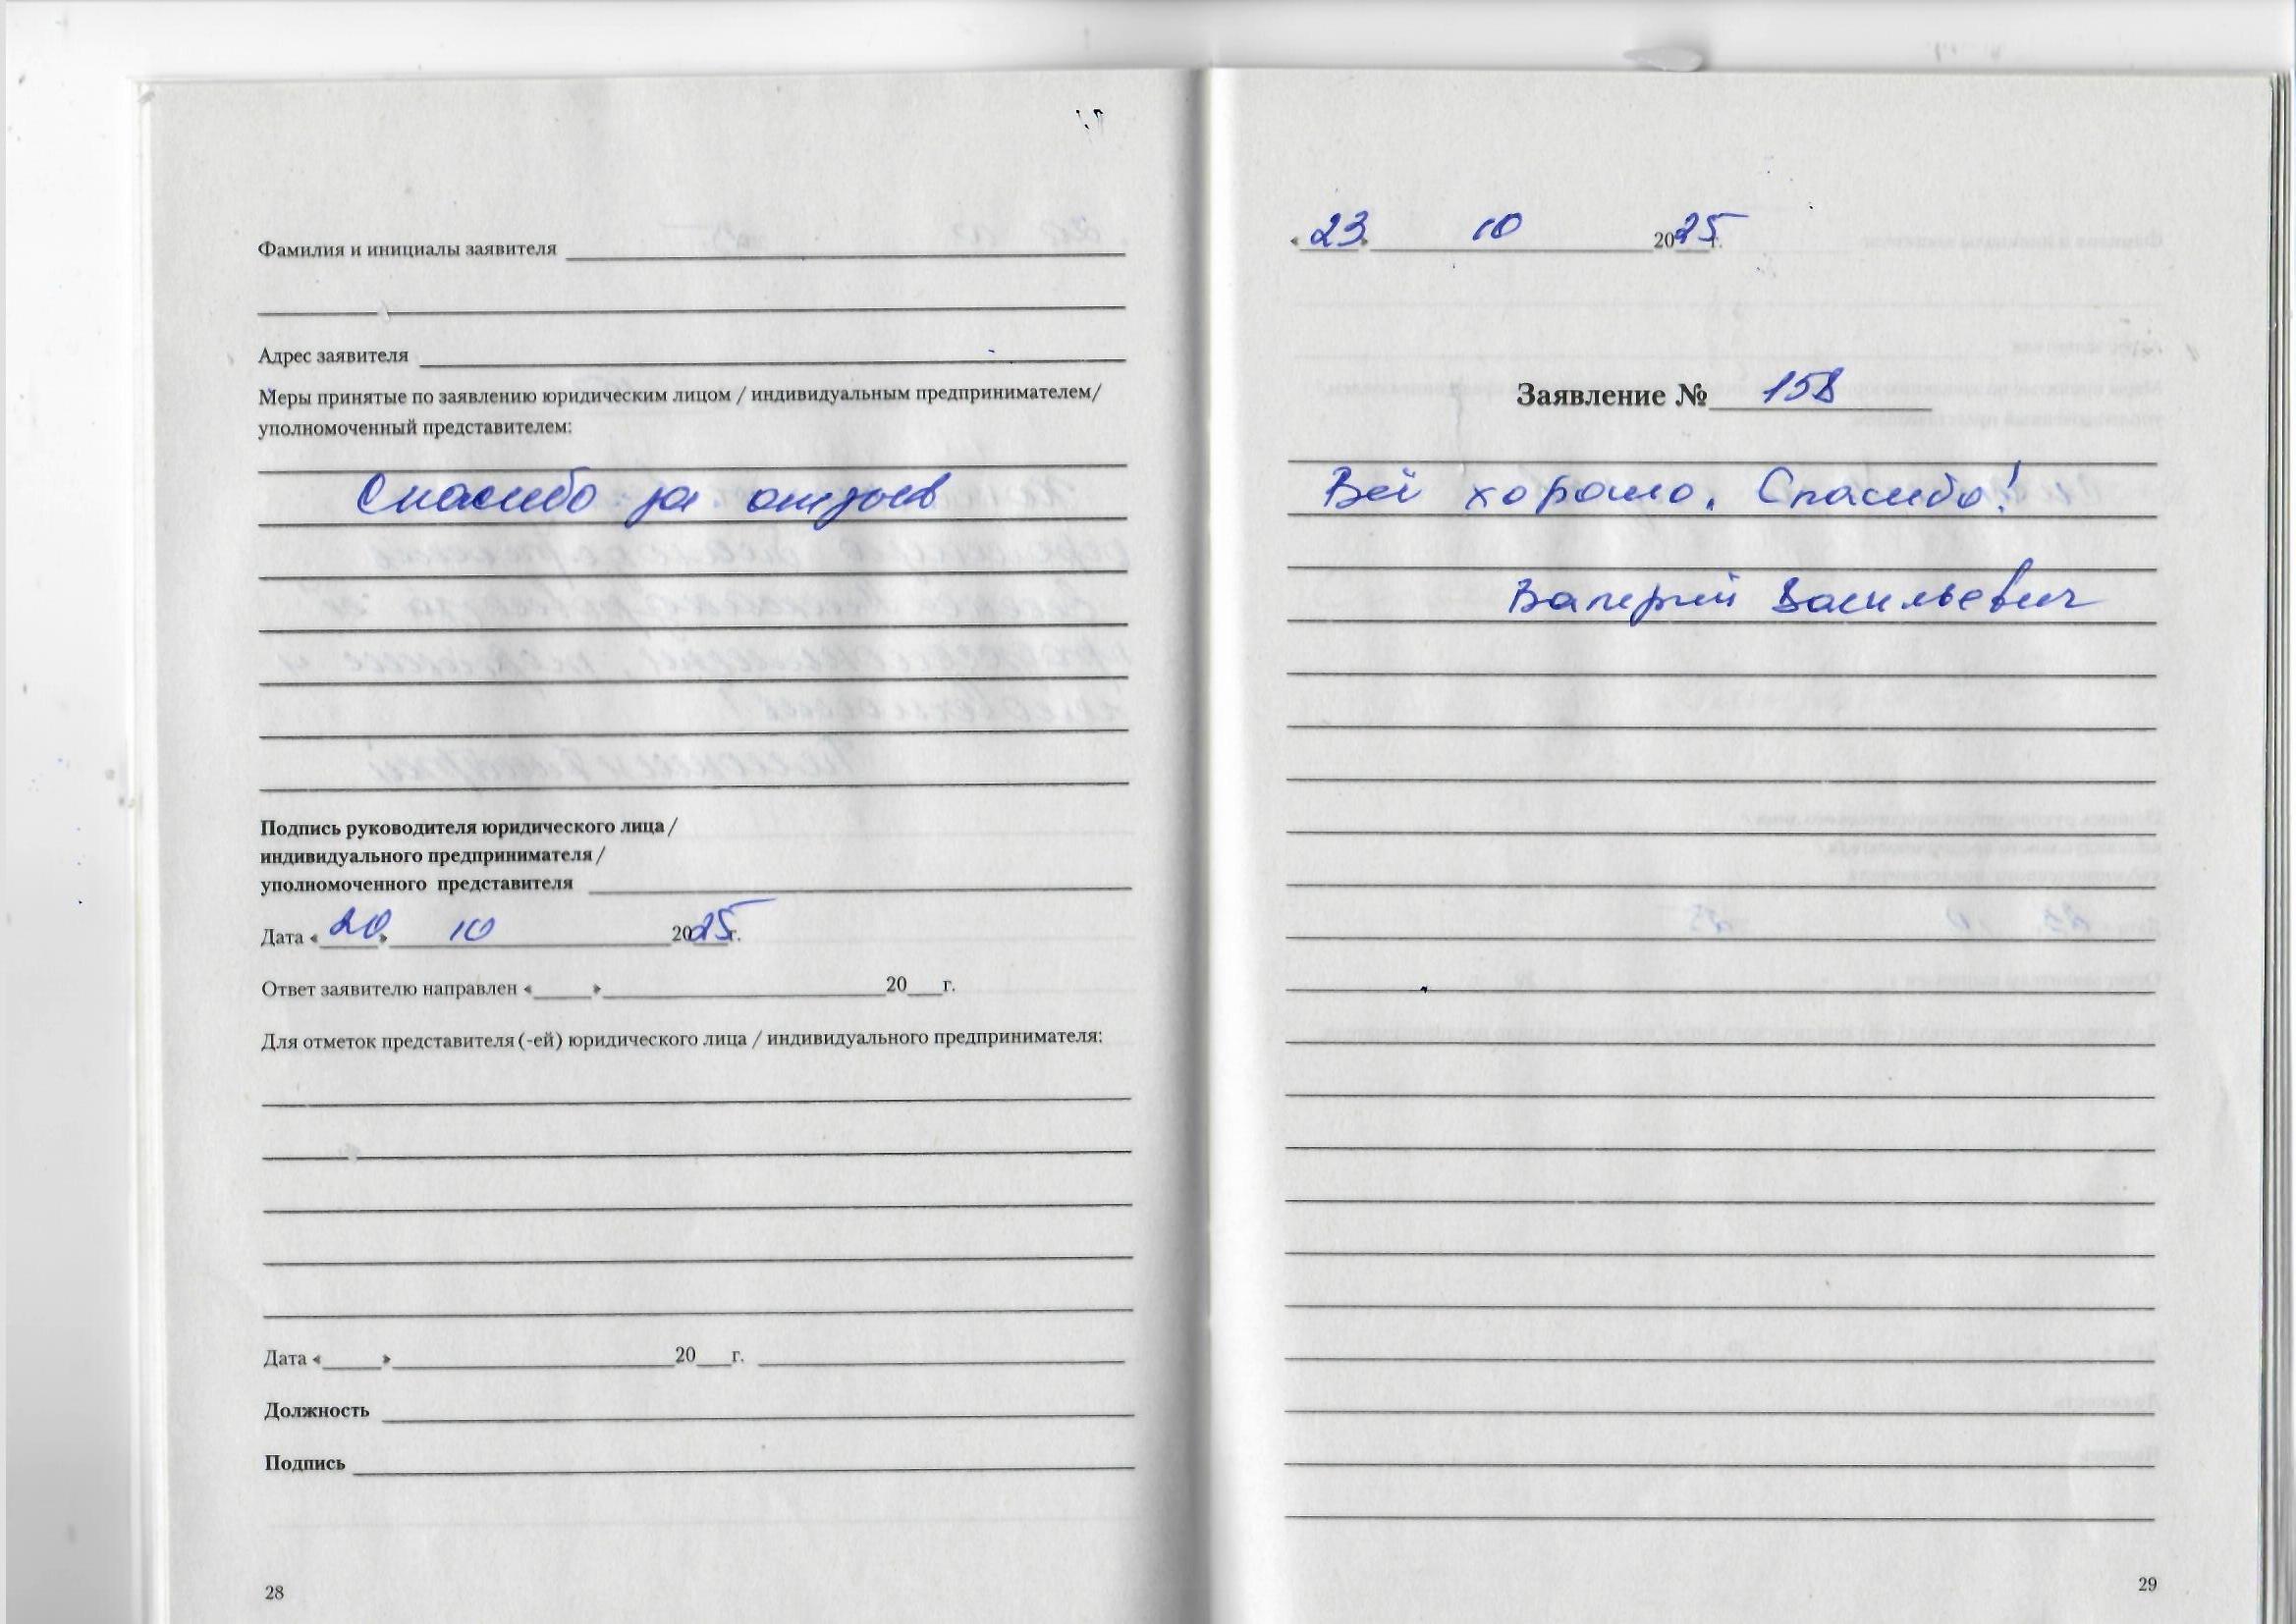 Фамилия и инициалы заявителя
Адрес заявителя
Меры принятые по заявлению юридическим лицом / индивидуальным предпринимателем/
уполномоченный представителем:
Спасибо за отзыв
Подпись руководителя юридического лица /
индивидуального предпринимателя /
уполномоченного представителя
Дата «20» 10 2025г.
Ответ заявителю направлен «_____»__________ 20___г.
Для отметок представителя (-ей) юридического лица / индивидуального предпринимателя:
Дата «_____»__________ 20___г.
Должность
Подпись
28
«23» 10 2025г.
Заявление № 158
Всё хорошо. Спасибо!
Валерий Васильевич
29